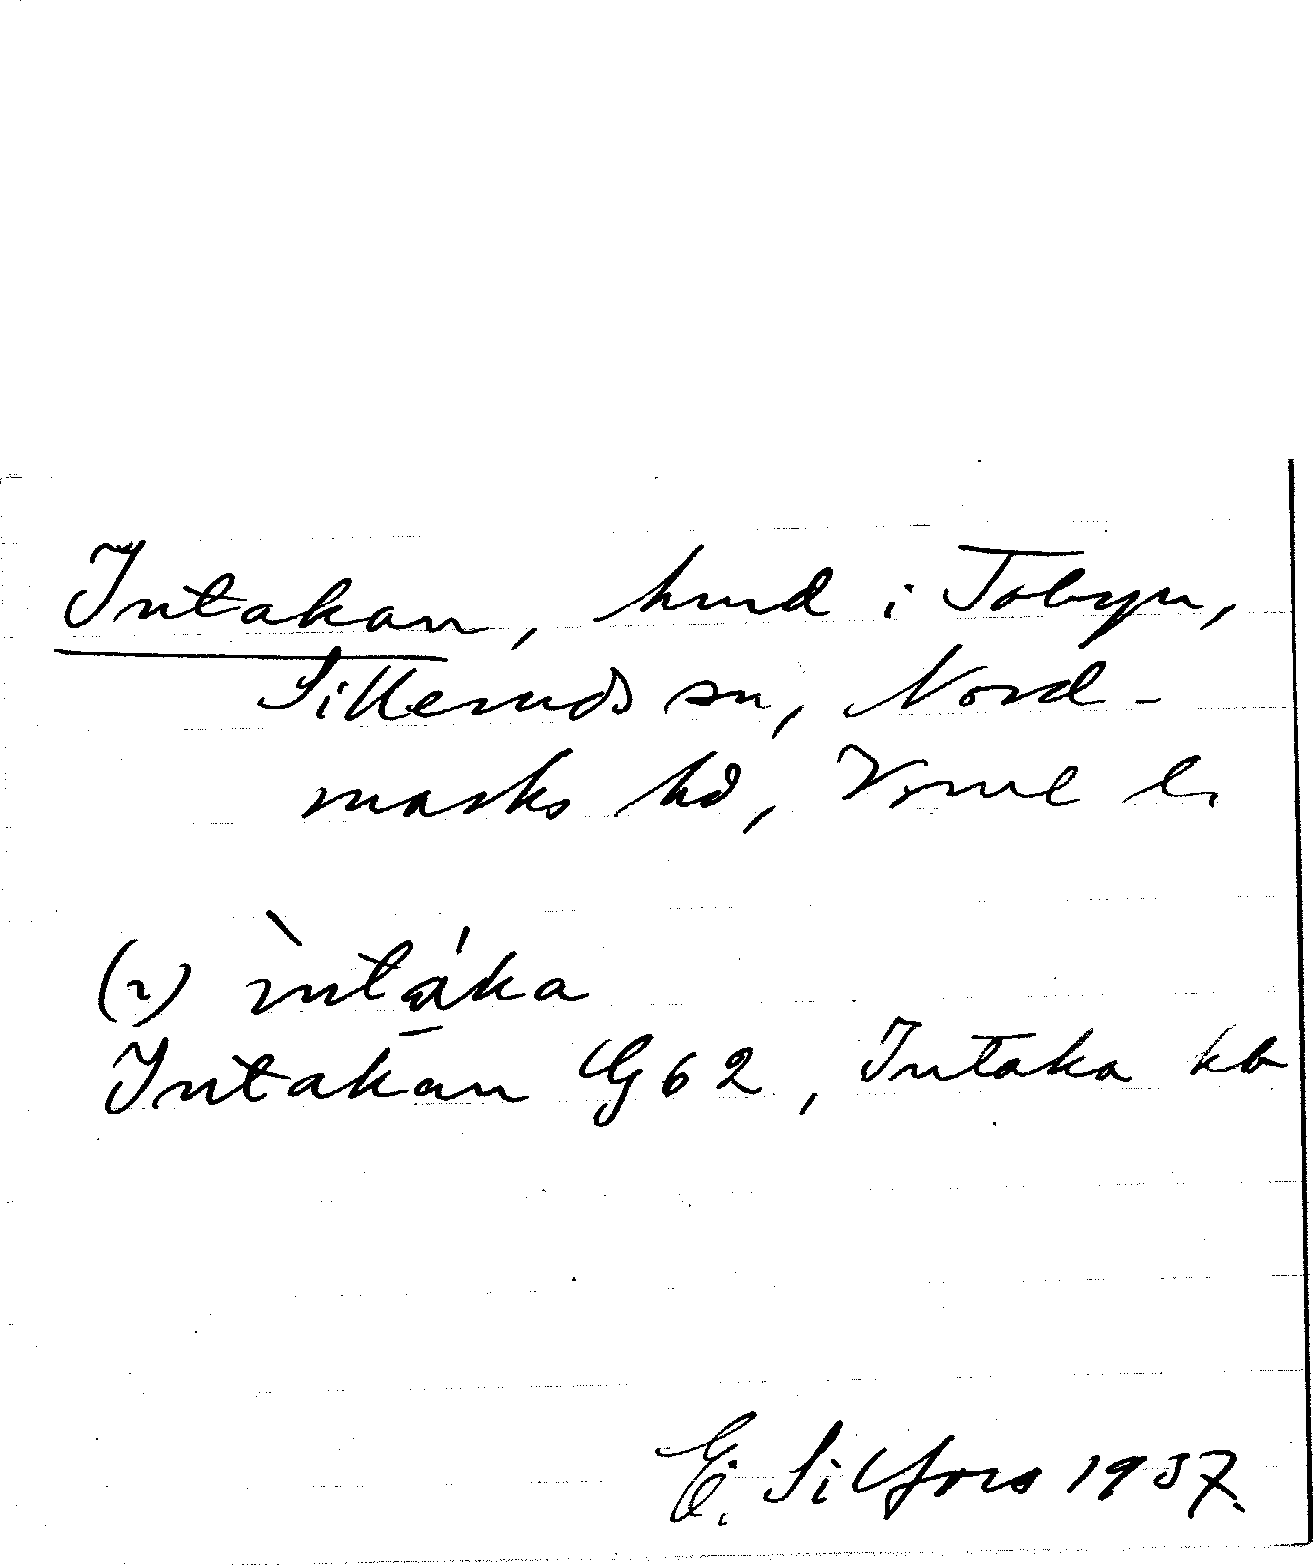 Intakan, hmd i Tobyn,
Silleruds sn, Nord-
marks hd, Vrml l.
(~) ìntáka
Intakan G62, Intaka kb
E. Silfors 1937.